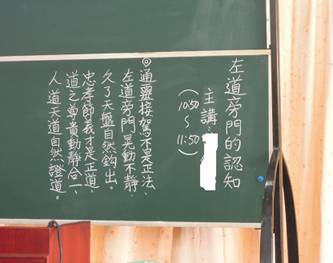 左道旁門的認知
主講：
（10:50
～
11:50）
◎通靈接駕不是正法、
左道旁門晃動不靜、
久了天盤自然鈎出。
忠孝節義才是正道、
道之尊貴動靜合一、
人道天道自然證道。